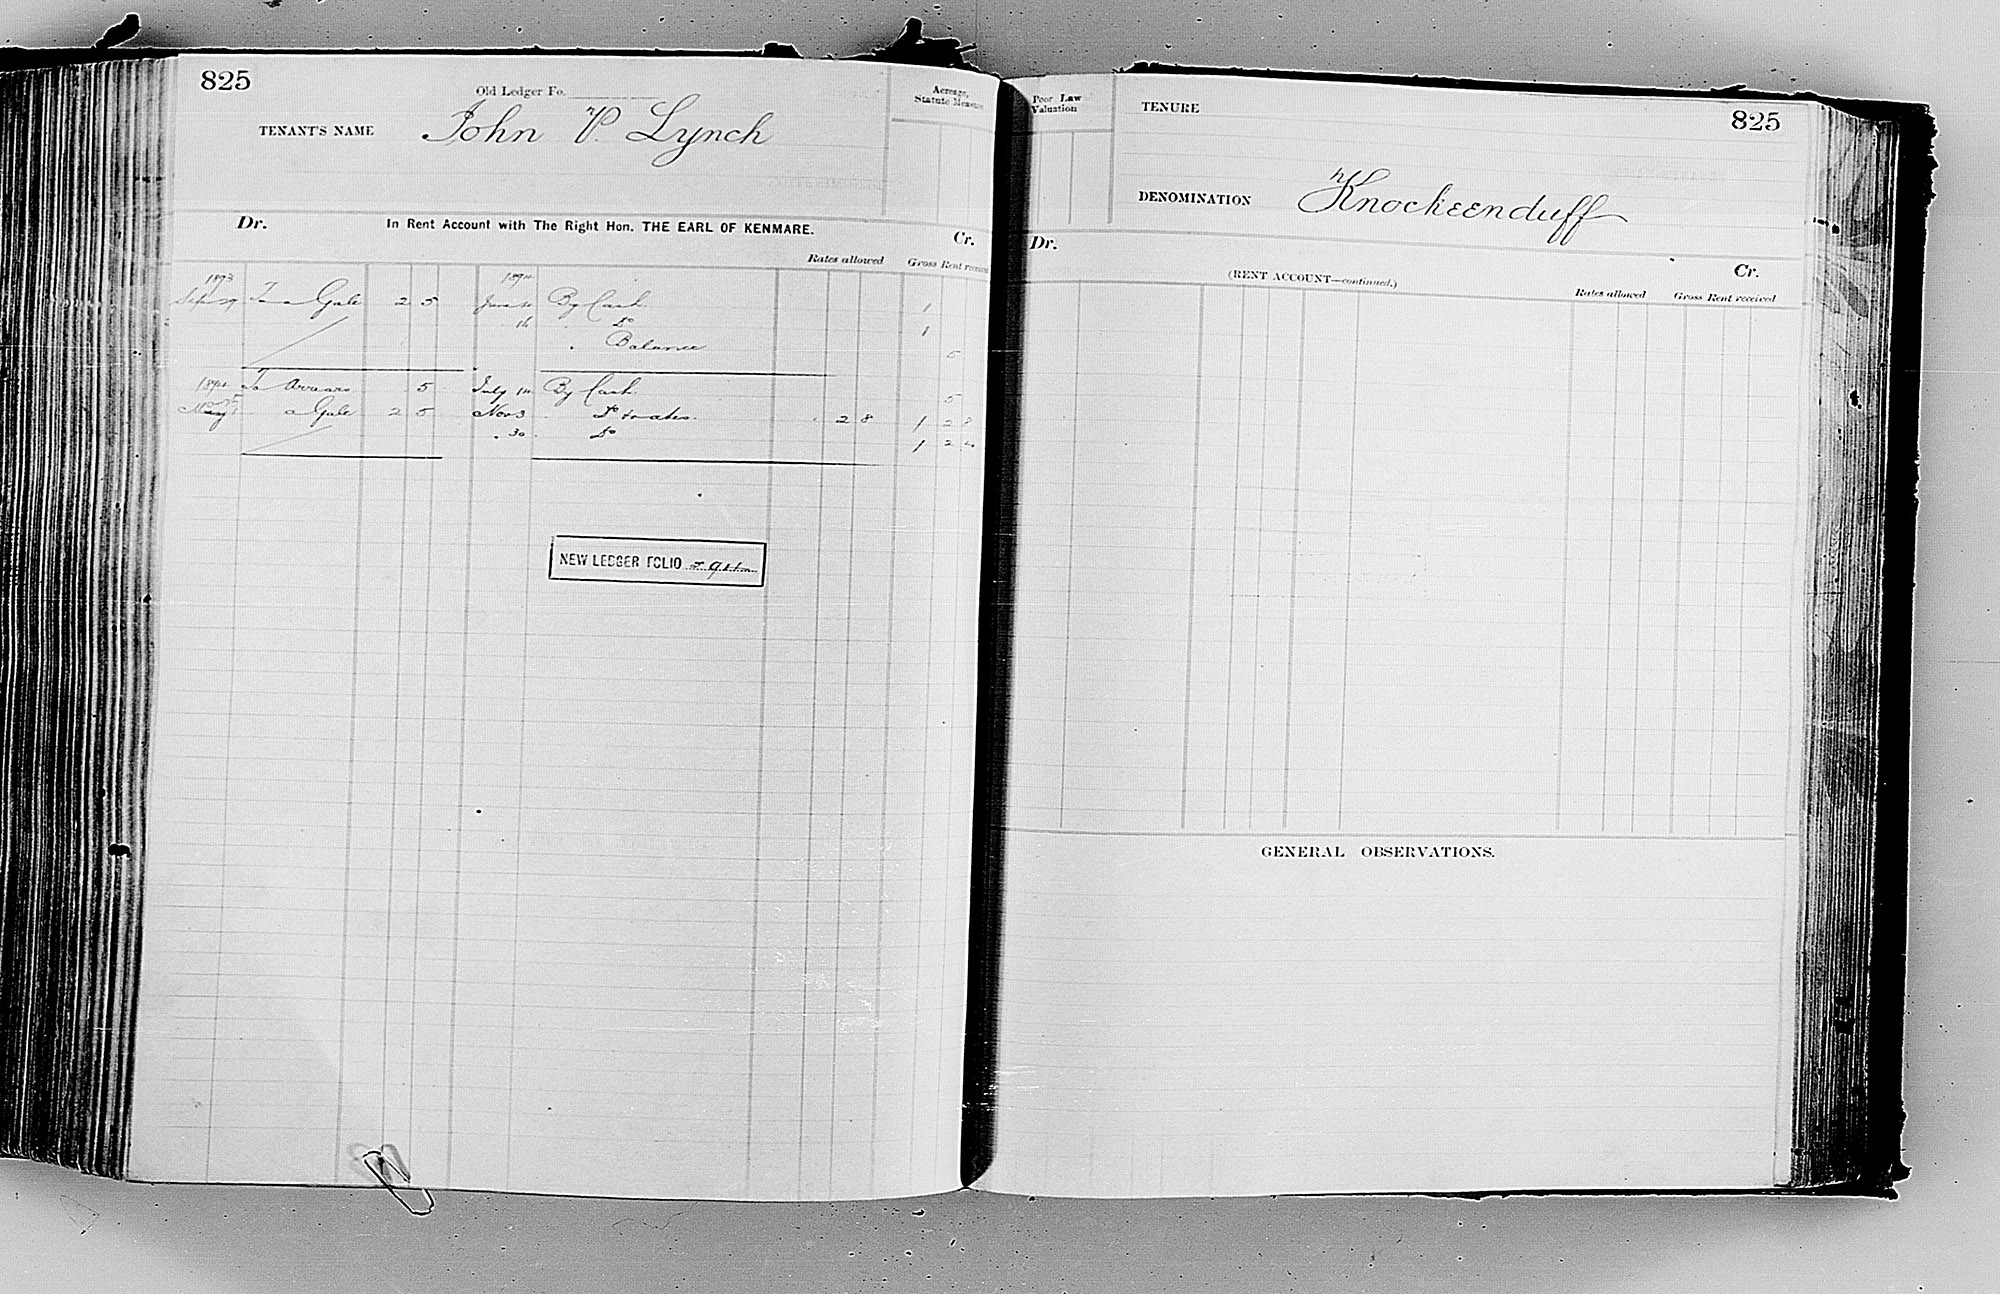 825
Old Ledger Fo.
TENANT'S NAME John P. Lynch
Acreage, Statute Measure
Dr. In Rent Account with The Right Hon. THE EARL OF KENMARE. Cr.
Rates allowed Gross Rent received
1893 1894
Sept 29 To a Gale 2 5 June By Cash 1
16 " Do 1
" Balance 5
1894 To Arrears 5 July 14 By Cash 5
May 1 a Gale 2 5 Nov 3 Do & rates 2 8 1 2 8
" 30 Do 1 2 4
NEW LEDGER FOLIO
Poor Law Valuation
TENURE
825
DENOMINATION Knockeenduff
Dr. Cr.
(RENT ACCOUNT—continued.)
Rates allowed Gross Rent received
GENERAL OBSERVATIONS.